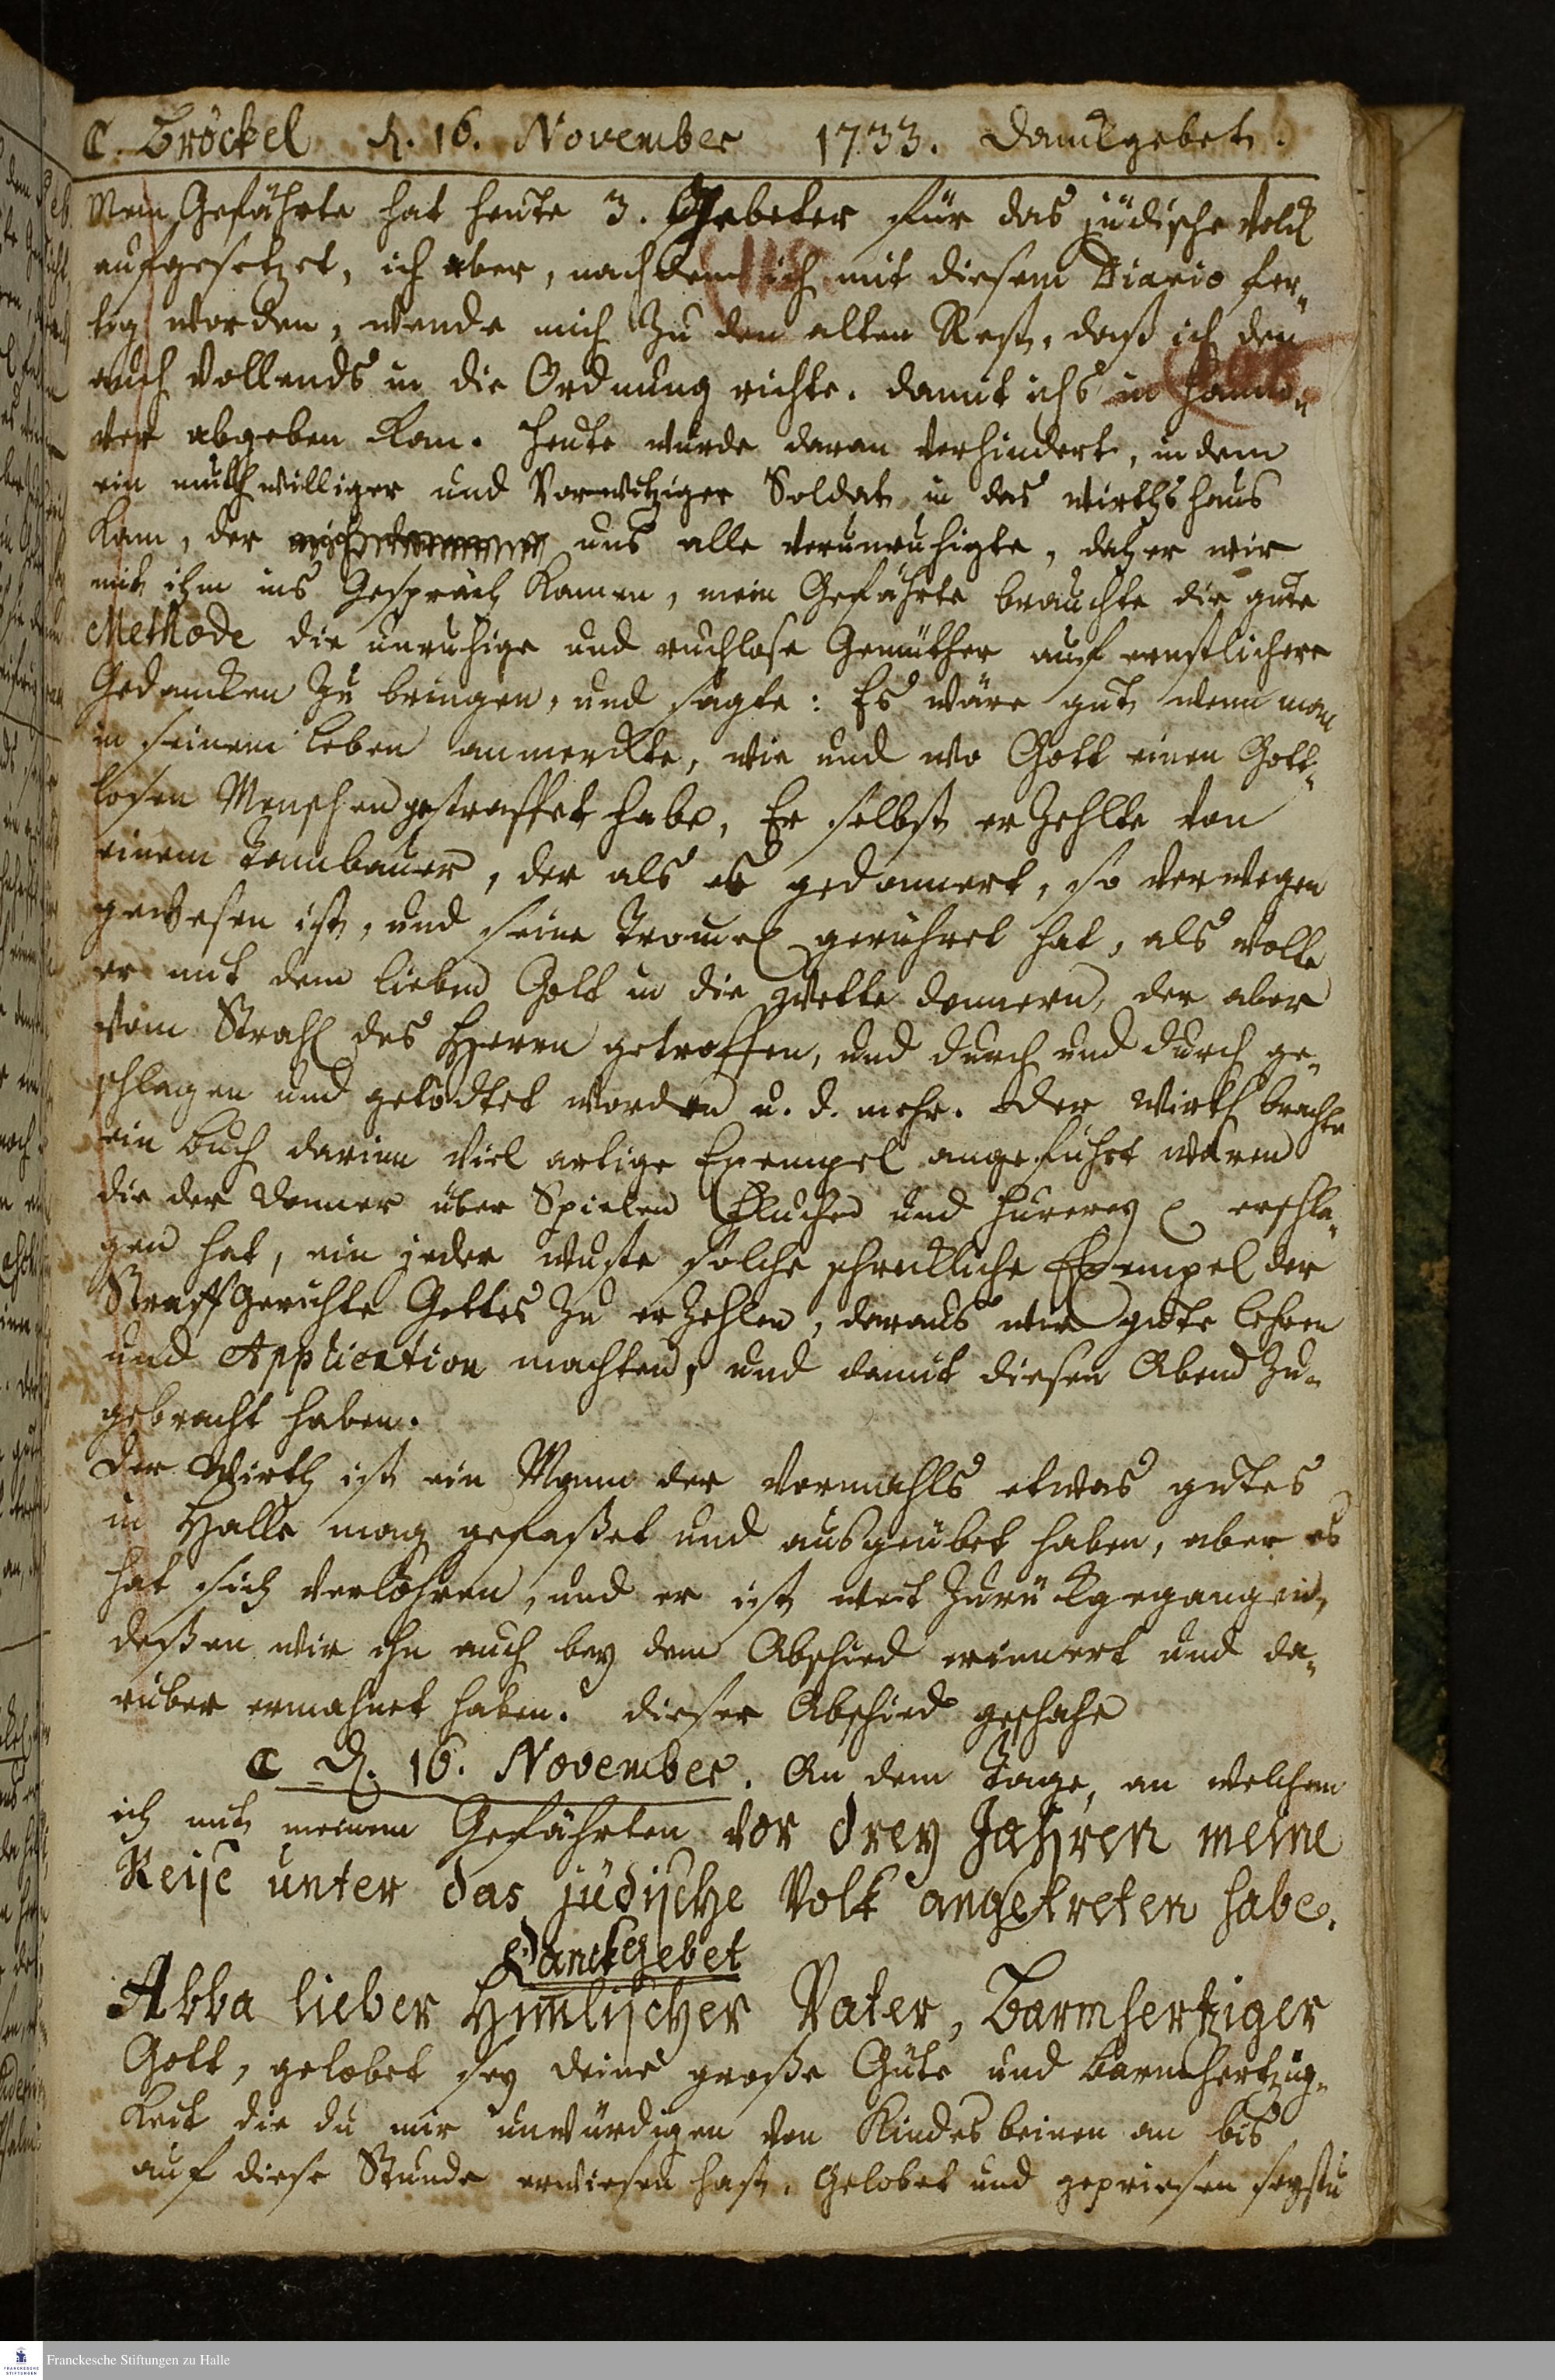 ☾. Bröckel d. 16. November 1733. Danckgebet.
Mein Gefährte hat heute 3. Gebeter für das jüdische Volck
aufgesetzet, ich aber, nachdem ich mit diesem Diario fer-
tig worden, wende mich zu den alten Rest, daß ich den
auch vollends in die Ordnung richte. damit ichs in Hanno-
ver abgeben kan. Heute wurde daran verhindert, in dem
ein muthwilliger und Vorwitziger Soldat in das wirthshaus
kam, der uns alle verunruhigte, daher wir
mit ihm ins Gespräch kamen, mein Gefährte brauchte die gute
Methode die unruhige und ruchlose Gemüther auf ernstlichere
Gedancken zu bringen, und sagte: Es wäre gut wenn man
in seinem Leben anmerckte, wie und wo Gott einen Gott-
losen Menschen gestraffet habe, Er selbst erzehlte von
einem Tambauer, der als es gedonnert, so verwegen
gewesen ist, und seine Tromel gerühret hat, als wolle
er mit dem lieben Gott in die Wette donnern, der aber
vom Strahl des Herrn getroffen, und durch und durch ge-
schlagen und getödtet worden u. d. mehr. Der Wirth brachte
ein Buch darinn viel artige Exempel angeführt waren
die der Donner über Spielen Fluchen und Hurerey erschla-
gen hat, ein jeder wuste solche schreckliche Exempel der
StraffGerichte Gottes zu erzehlen, daraus wir gute Lehren
und Application machten, und damit diesen Abend zu-
gebracht haben.
Der Wirth ist ein Mann der vormahls etwas gutes
in Halle mag gefaßet und ausgeübet haben, aber es
hat sich verlohren, und er ist weit zurückgegangen,
deßen wir ihn auch bey dem Abschied erinnert und da-
rüber ermahnet haben. dieser Abschied geschahe
☾ d. 16. November. An dem Tage, an welchem
ich mit meinem Gefährten vor drey Jahren meine
Reise unter das jüdische Volk angetreten habe.
DanckGebet
Abba lieber Himlischer Vater, Barmhertziger
Gott, gelobet sey deine große Güte und Barmhertzig-
keit die du mir unwürdigen von Kindesbeinen an bis
auf diese Stunde erwiesen hast. Gelobet und gepriesen seystu
Franckesche Stiftungen zu Halle